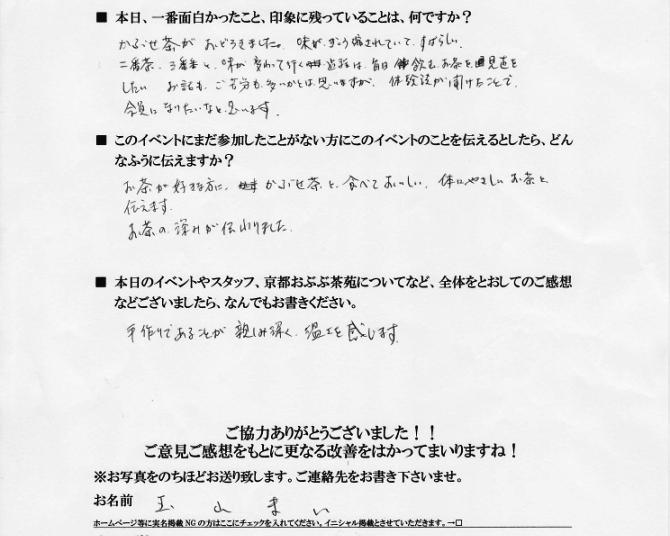 ■ 本日、一番面白かったこと、印象に残っていることは、何ですか?
かぶせ茶がおどろきました。味が ぎょう縮されていて、すばらしい。
二番茶、3番茶と、味が変わって行く
したい お話も、ご苦労も多いかとは思いますが、体験談が聞けたことで、
会員になりたいなと思います。
■ このイベントにまだ参加したことがない方にこのイベントのことを伝えるとしたら、どん
なふうに伝えますか?
お茶が好きな方に、かぶせ茶と、食べておいしい、体にやさしいお茶と
伝えます。
お茶の深みが伝わりました。
■ 本日のイベントやスタッフ、京都おぶぶ茶苑についてなど、全体をとおしてのご感想
などございましたら、なんでもお書きください。
手作りであることが親しみ深く、温江を感じます
ご協力ありがとうございました!!
ご意見ご感想をもとに更なる改善をはかってまいりますね!
※お写真をのちほどお送り致します。ご連絡先をお書き下さいませ。
お名前 玉山まい
ホームページ等に実名掲載NGの方はここにチェックを入れてください。イニシャル掲載とさせていただきます。→□